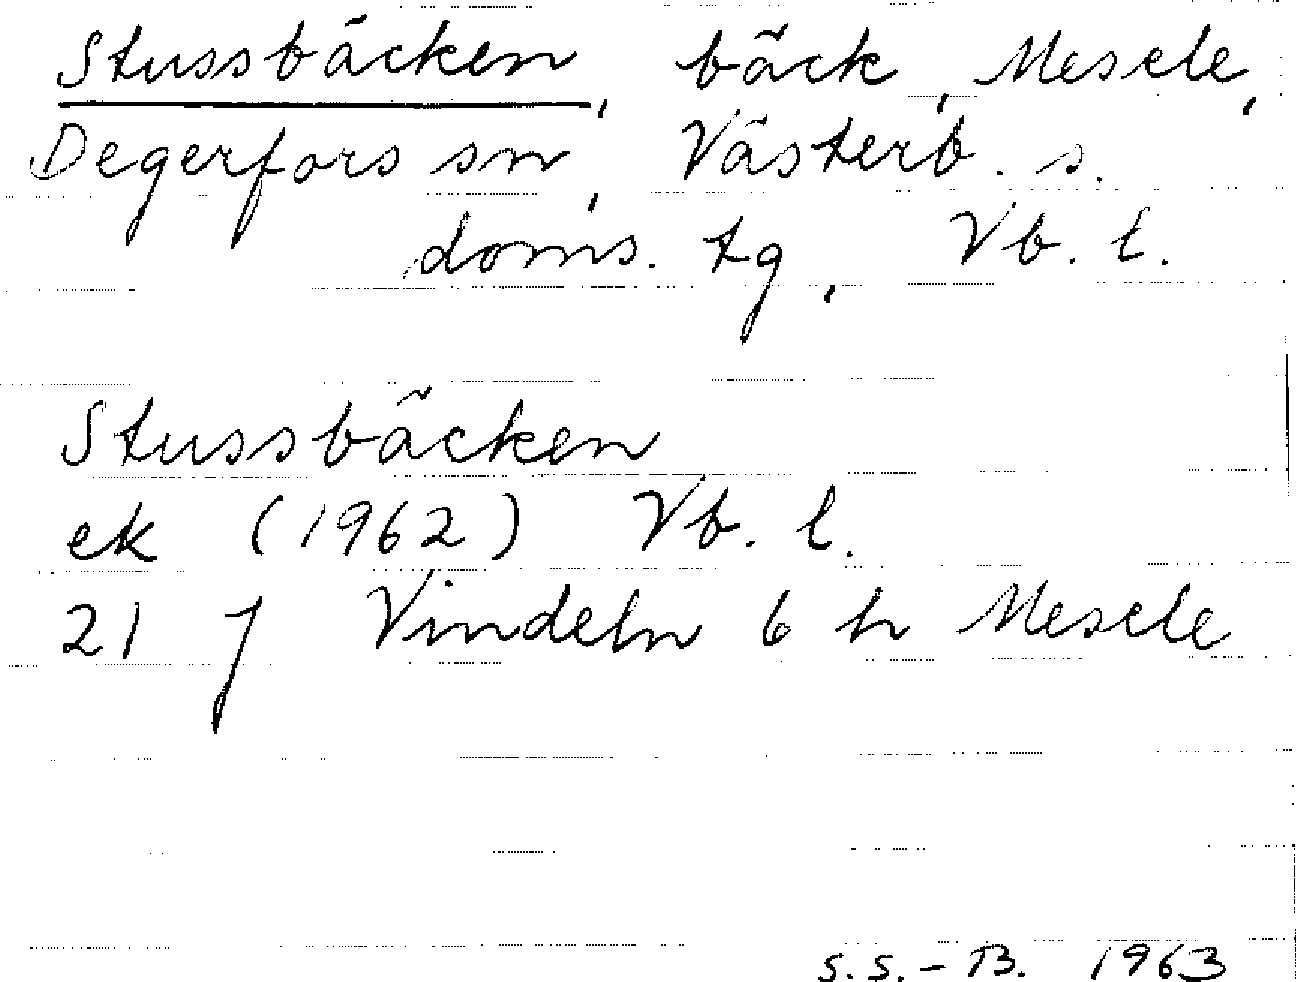 Stussbäcken, bäck, Mesele,
Degerfors sn, Västerb. s.
doms. tg, Vb. l.
Stussbäcken
ek (1962) Vb. l.
21 J Vindeln 6 h Mesele
S.S.-B. 1963